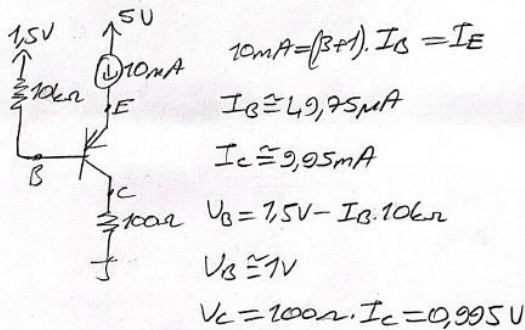 1,5V
5V
10kΩ
10mA
E
B
C
100Ω
10mA=(β+1).IB=IE
IB≅49,75μA
Ic≅9,95mA
UB=1,5V-IB.10kΩ
UB≅1V
Vc=100Ω.Ic=0,995V